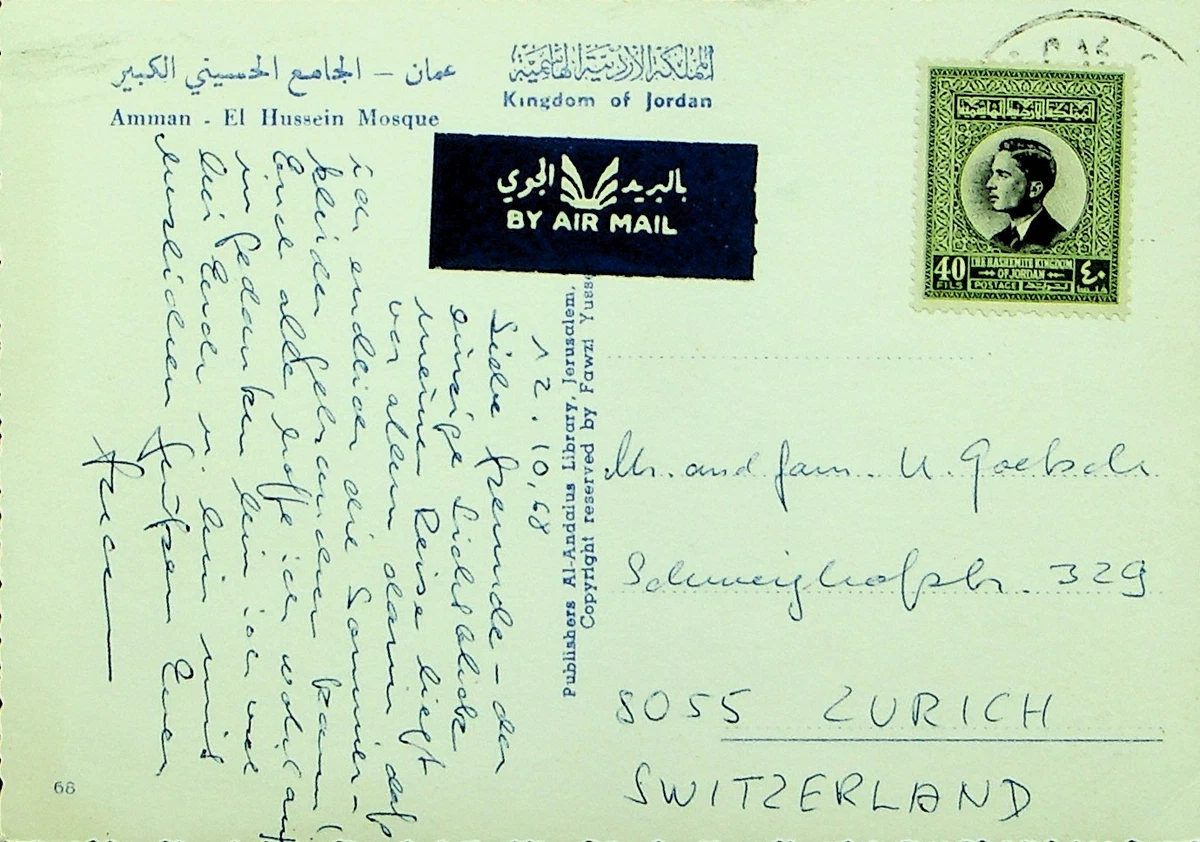 عمان – الجامع الحسيني الكبير
Amman - El Hussein Mosque
المملكة الأردنية الهاشمية
Kingdom of Jordan
بالبريد الجوي
BY AIR MAIL
المملكة الأردنية الهاشمية
40
FILS
THE HASHEMITE KINGDOM
OF JORDAN
POSTAGE
٤٠
Publishers Al-Andalus Library, Jerusalem,
Copyright reserved by Fawzi Yusse
12.10.68
Liebe Freunde – der
einzige Lichtblick
meiner Reise liegt
vor allem darin daß
ich endlich die Sommer-
kleider gebrauchen kann!
Euch alle hoffe ich wohlauf
in Gedanken bin ich viel
bei Euch u. bin mit
herzlichen Grüßen Euer
Mr. and Fam. U. Goetsch
Schweighofstr. 329
8055 ZURICH
SWITZERLAND
68